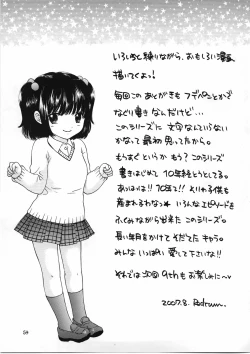 いろいろと練りながら、おもしろい漫画
描いてくよっ!
毎回このあとがきもフデペンとかで
なぐり書きなんだけど…
このシリーズに文字なんていらない
かなって最初思ってたから。
もうすぐというかもう?このシリーズ
書きはじめて10年経とうとしてる。
あっはは!!10年っ!!そりゃ子供も
産まれるわなっ いろんなエピソードを
ふくみながら出来たこのシリーズ。
長い年月をかけてそだてたキャラ。
みんないっぱい愛して下さいな!!
それでは次回9thもお楽しみに〜
2007.8. Redrum.
54